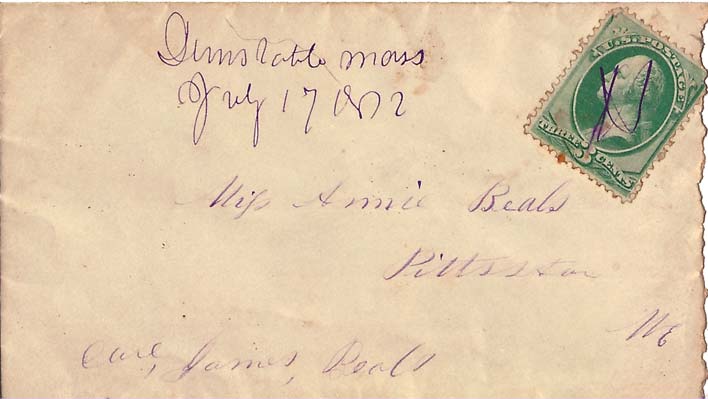 Dunstable mass
July 17 1872
U.S. POSTAGE
THREE 3 CENTS
Miss Annie Beals
Pittston
Me
Care, James, Beals